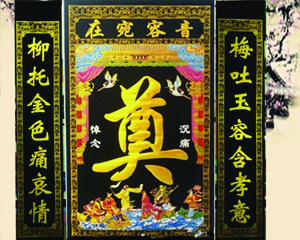 音容宛在
梅吐玉容含孝意
沉痛
奠
悼念
柳托金色痛哀情